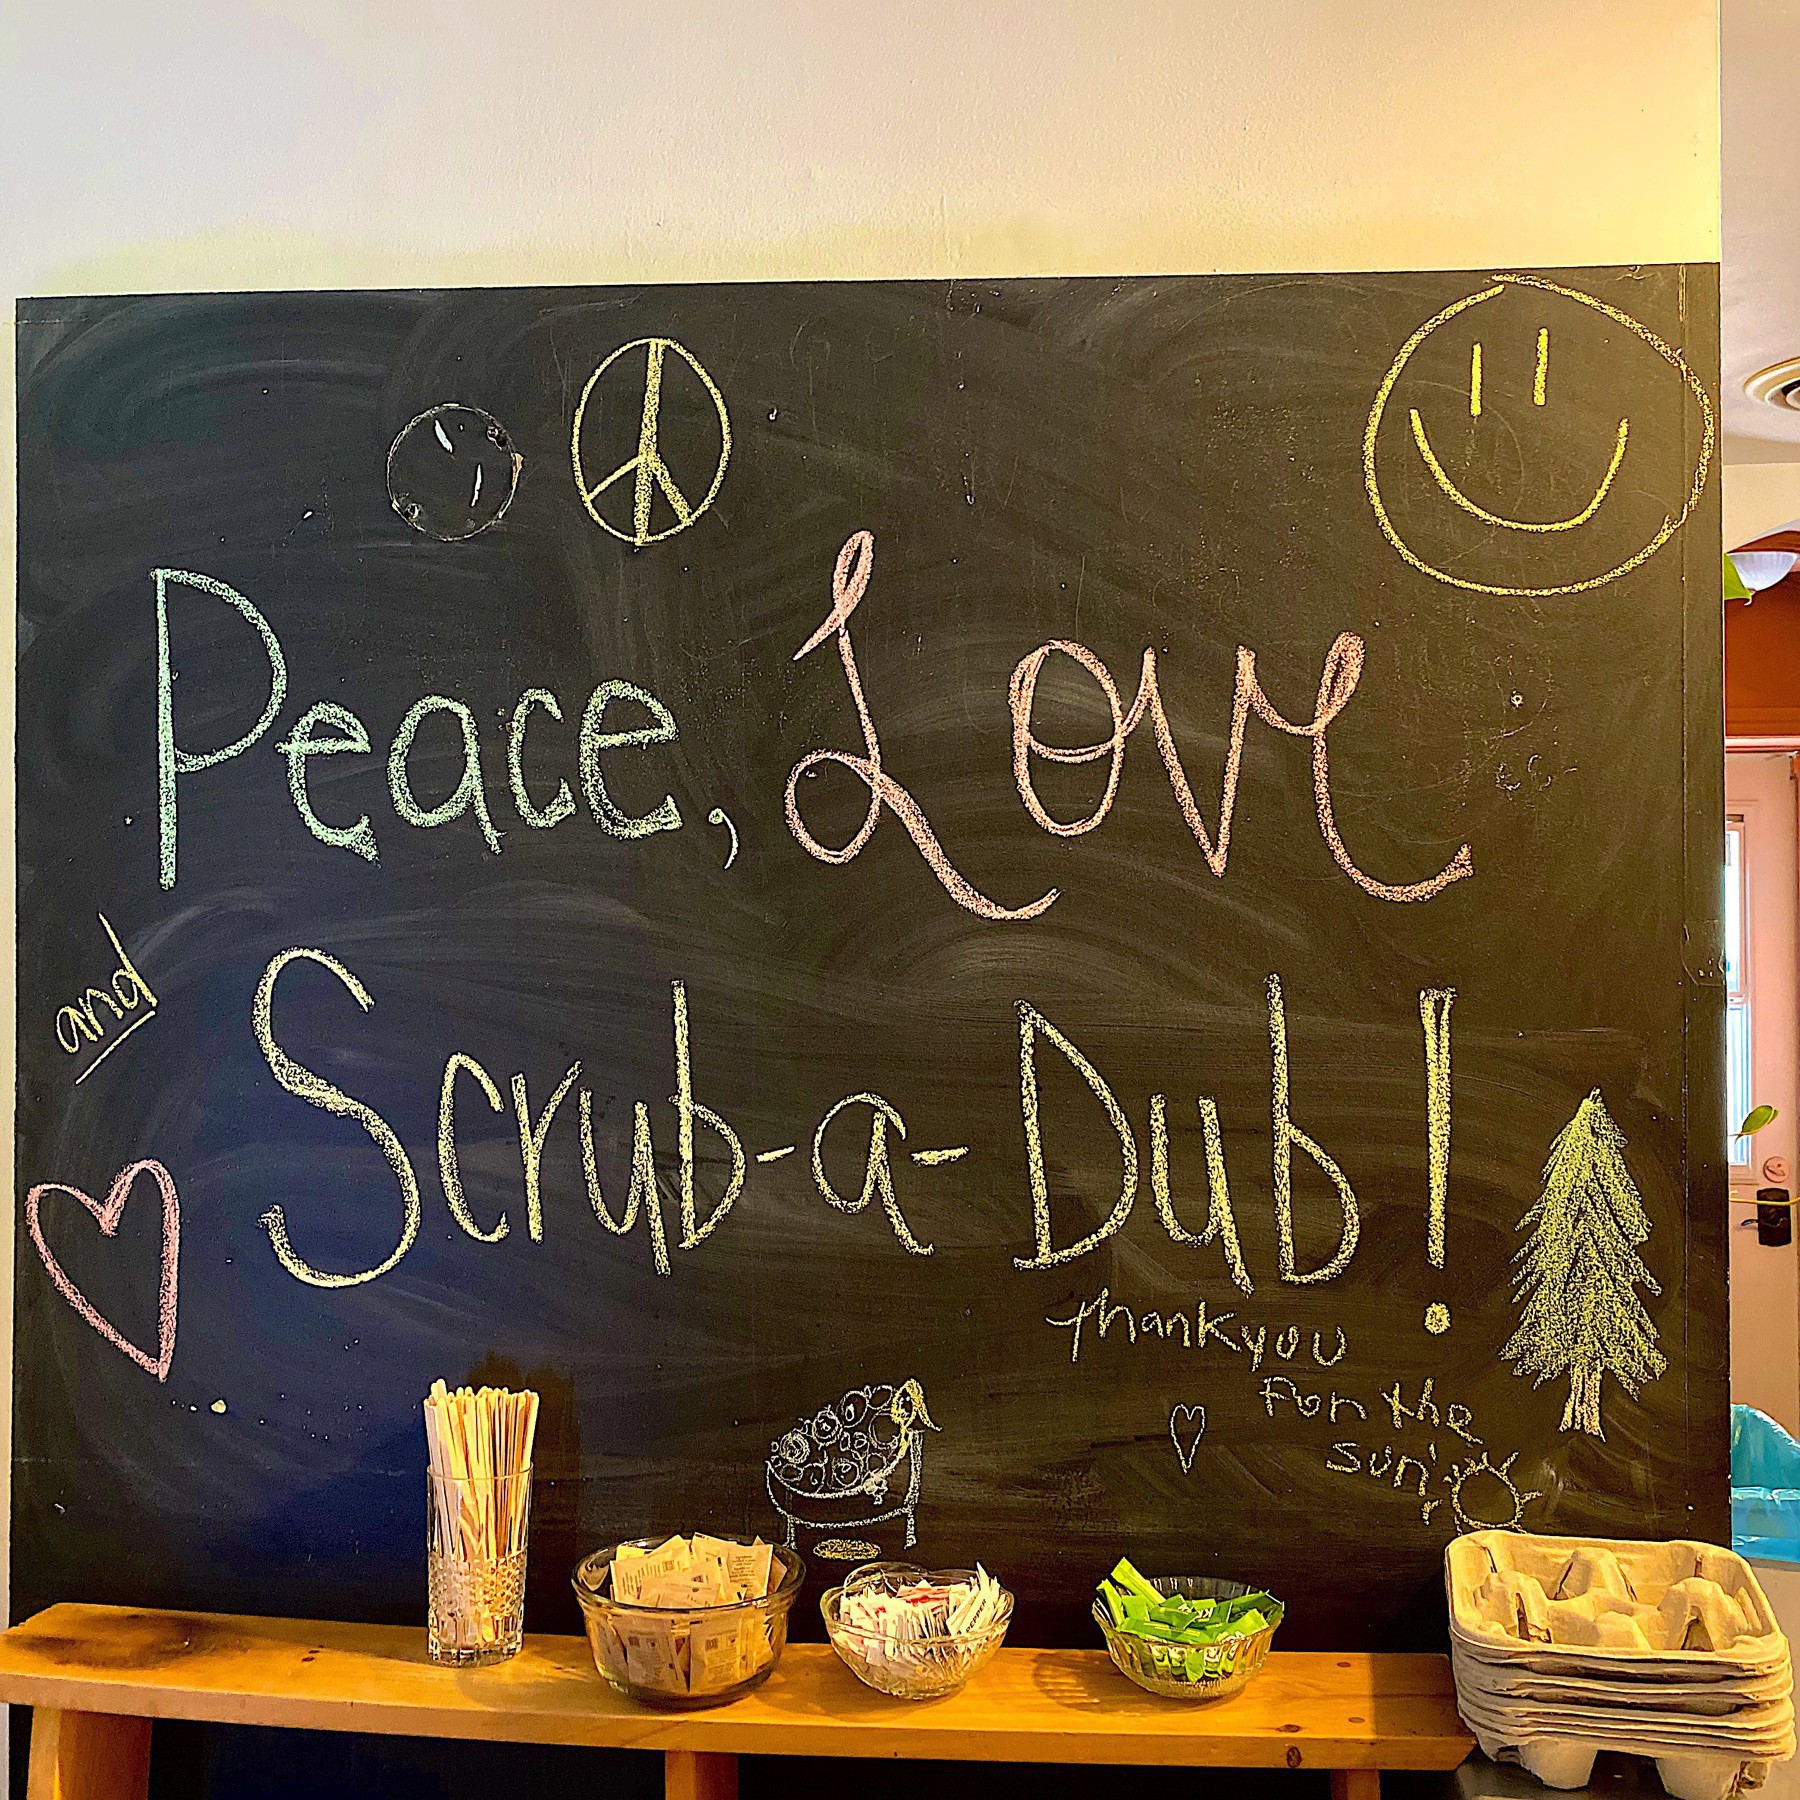 Peace, Love
and
Scrub-a-Dub!
thank you
for the
sun!